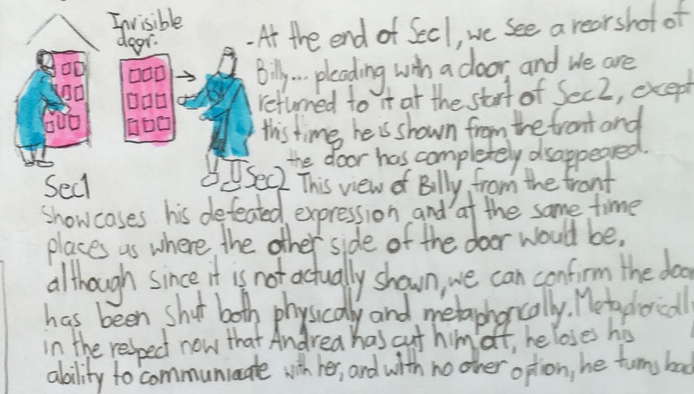 Invisible
door.
-At the end of Sec1, we see a rear shot of
Billy... pleading with a door and we are
returned to it at the start of Sec2, except
this time, he is shown from the front and
the door has completely disappeared.
Sec1
Sec2 This view of Billy from the front
showcases his defeated expression and at the same time
places us where the other side of the door would be,
although since it is not actually shown, we can confirm the door
has been shut both physically and metaphorically. Metaphorically
in the respect now that Andrea has cut him off, he loses his
ability to communicate with her, and with no other option, he turns back